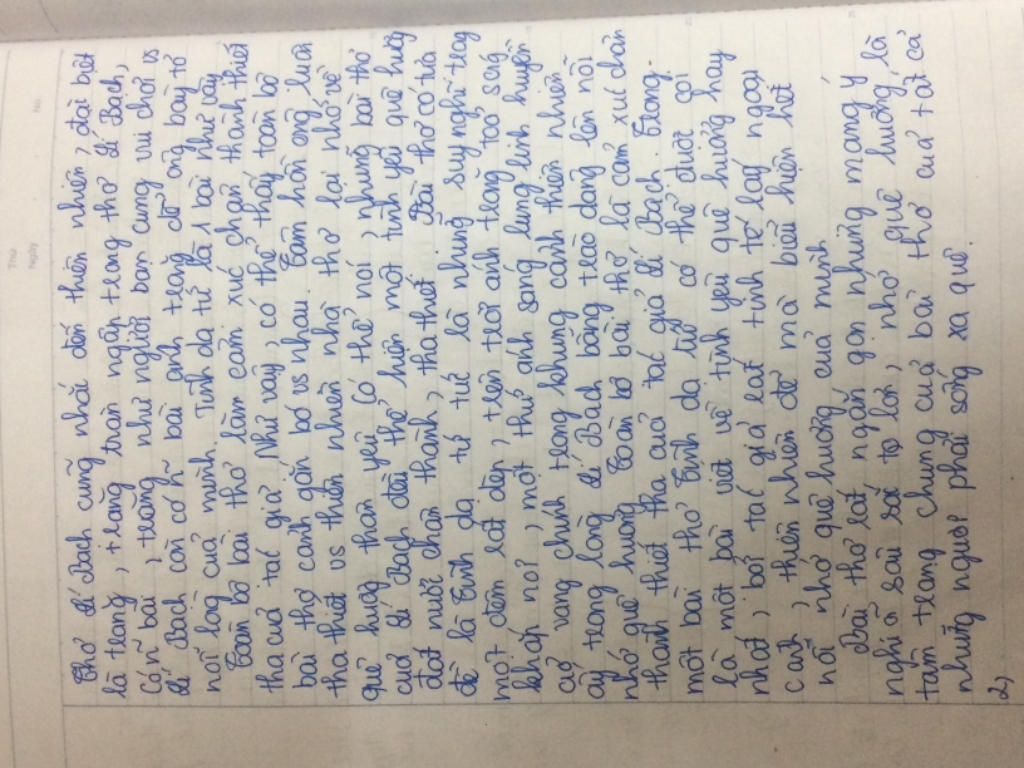 Thứ
Ngày
No.
Thơ Lí Bạch cũng nhắc đến thiên nhiên, đặc biệt
là trăng, trăng tràn ngập trong thơ Lí Bạch,
Có ñ bài, trăng như người bạn cùng vui chơi vs
Lí Bạch còn có ñ bài ánh trăng để ông bày tỏ
nỗi lòng của mình. Tĩnh dạ tứ là 1 bài như vậy
Toàn bộ bài thơ làm cảm xúc chân thành thiết
tha của tác giả. Như vậy, có thể thấy toàn bộ
bài thơ cảnh gắn bó vs nhau. Tâm hồn ông luôn
tha thiết vs thiên nhiên nhà thơ lại nhớ về
quê hương thân yêu có thể nói, những bài thơ
của Lí Bạch đều thể hiện một tình yêu quê hương
đất nước chân thành, tha thiết. Bài thơ có tựa
đề là Tĩnh dạ tứ tức là những suy nghĩ trong
một đêm rất đẹp, trên trời ánh trăng toả sáng
khắp nơi, một thứ ánh sáng lung linh huyền
ảo vang chính trong khung cảnh thiên nhiên
ấy trong lòng Lí Bạch bỗng trào dâng lên nỗi
nhớ quê hương. Toàn bộ bài thơ là cảm xúc chân
thành thiết tha của tác giả Lí Bạch. Trong
một bài thơ Tĩnh dạ tứ có thể được coi
là một bài viết về tình yêu quê hương hay
nhất, bởi tác giả rất tinh tế lấy ngoại
cảnh, thiên nhiên để mà biểu hiện hết
nỗi nhớ quê hương của mình.
Bài thơ rất ngắn gọn nhưng mang ý
nghĩa sâu sắc to lớn, nhớ quê hương là
tâm trạng chung của bài thơ của tất cả
những người phải sống xa quê.
2,